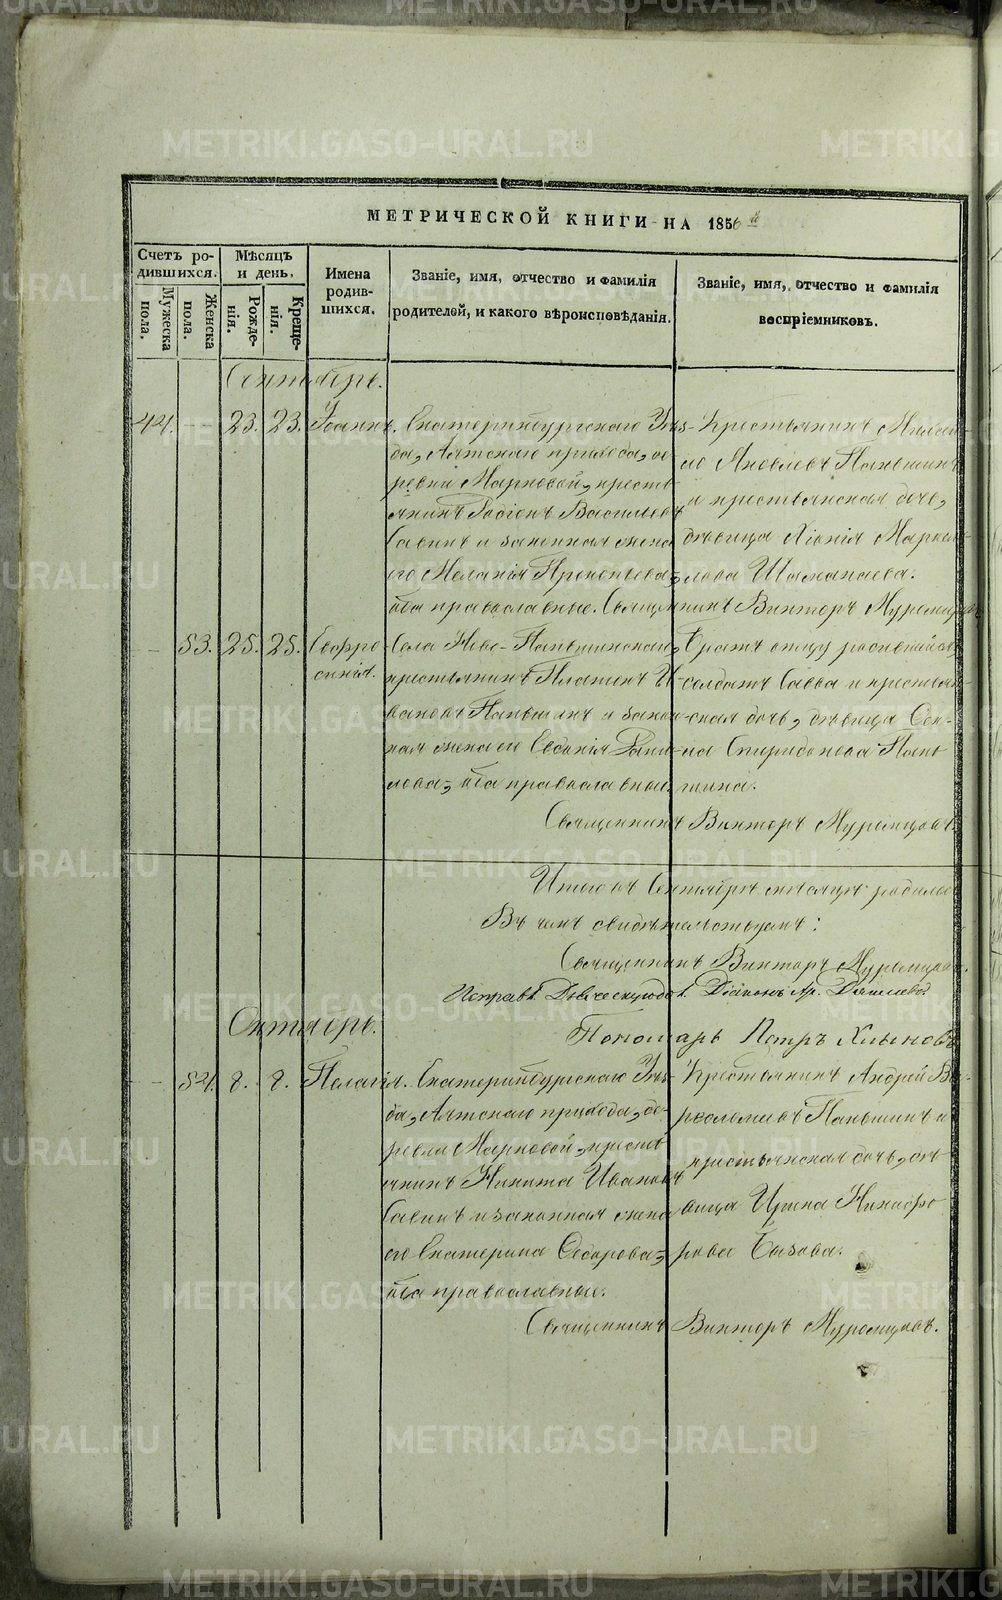 METRIKI.GASO-URAL.RU
МЕТРИЧЕСКОЙ КНИГИ НА 1856й
Счетъ ро-
дившихся.
Мужеска
пола.
Женска
пола.
Мѣсяцъ
и день.
Рожде-
нія.
Креще-
нія.
Имена
родив-
шихся.
Званіе, имя, отчество и фамилія
родителей, и какого вѣроисповѣданія.
Званіе, имя, отчество и фамилія
воспріемниковъ.
Сентябрь.
44. 23. 23. Іоаннъ.
Екатеринбургскаго Уѣз-
да, Аятскаго прихода, де
ревни Марковой, кресть
янинъ Родіонъ Васильевъ
Савинъ и законная жена
его Меланія Прокопьева,
оба православные.
Крестьянинъ
Яковлевъ Паньшинъ
и крестьянская дочь,
дѣвица Хіонія Маркел-
лова Шаманаева.
Священникъ Викторъ Муромцовъ
53. 25. 25. Евфро
синія.
Села Ново-Паньшинскаго,
крестьянинъ Платонъ И-
вановъ Паньшинъ и закон
ная жена его Евдокія
оба православные.
Братъ отцу
солдатъ Савва и крестьян-
ская дочь, дѣвица
Спиридонова Пань
шина.
Священникъ Викторъ Муромцовъ.
Итого въ Сентябрѣ мѣсяцѣ родилось
Въ чемъ свидѣтельствуемъ:
Священникъ Викторъ Муромцовъ.
Діаконъ
Пономарь Петръ Хлыновъ
Октябрь.
54. 8. 8. Пелагія.
Екатеринбургскаго Уѣз-
да, Аятскаго прихода, де-
ревни Марковой, кресть
янинъ Никита Ивановъ
Савинъ и законная жена
его Екатерина Ѳедорова,
оба православные.
Крестьянинъ Андрей Ва-
рѳоломеевъ Паньшинъ и
крестьянская дочь, дѣ
вица Ирина Никифо
рова Бызова.
Священникъ Викторъ Муромцовъ.